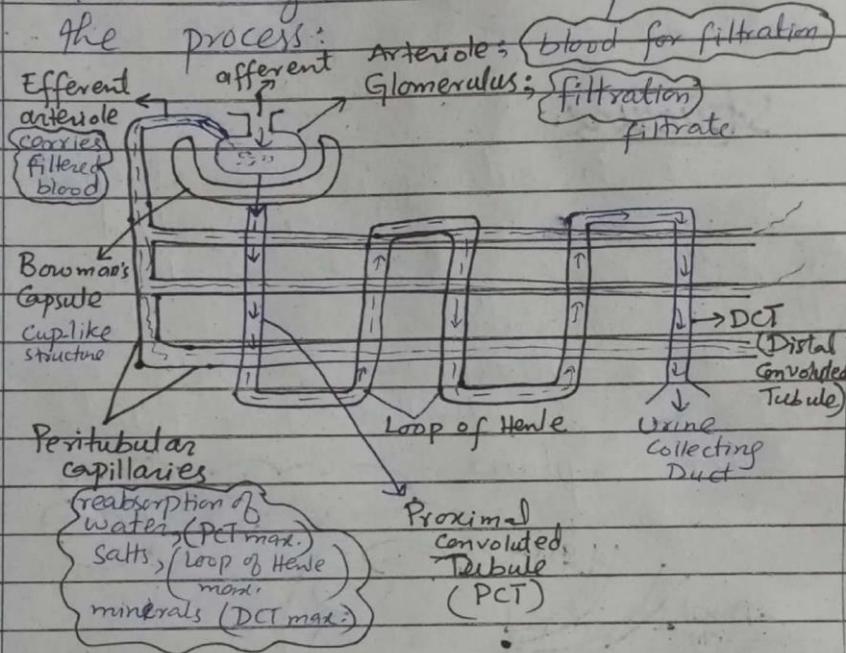 the process:
Arteriole: blood for filtration
afferent
Glomerulus: filtration
filtrate
Efferent
arteriole
carries
filtered
blood
Bowman's
Capsule
Cup-like
structure
DCT
(Distal
Convoluted
Tubule)
Loop of Henle
Urine
Collecting
Duct
Peritubular
capillaries
reabsorption of
water, (PCT max.)
Salts, (Loop of Henle
max.)
minerals (DCT max.)
Proximal
Convoluted
Tubule
(PCT)